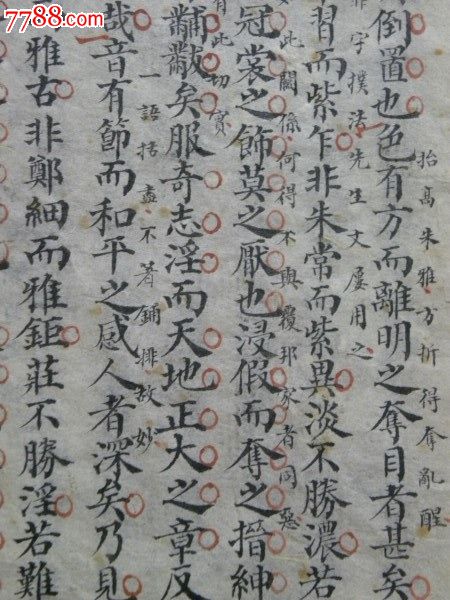 7788.com
抬高朱雅方折得奪亂醒
倒置也色有方而離明之奪目者甚矣
字撲法先生文屢用之
習而紫乍非朱常而紫異淡不勝濃若
此關係何得不與覆邦家者同惡
冠裳之飾莫之厭也浸假而奪之搢紳
有此切實
黼黻矣服奇志淫而天地正大之章反
一語括盡不著鋪排故妙
哉音有節而和平之感人者深矣乃見
雅古非鄭細而雅鉅莊不勝淫若難